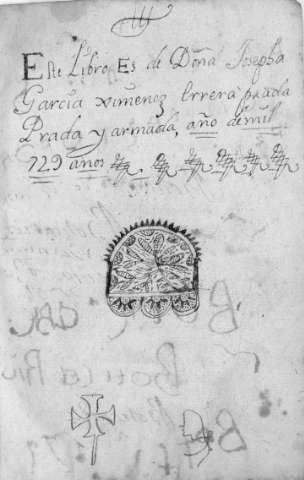 Este Libro Es de Doña Josepha
Garcia ximenez Errera prada
Prada y armada, año de mil
729 años